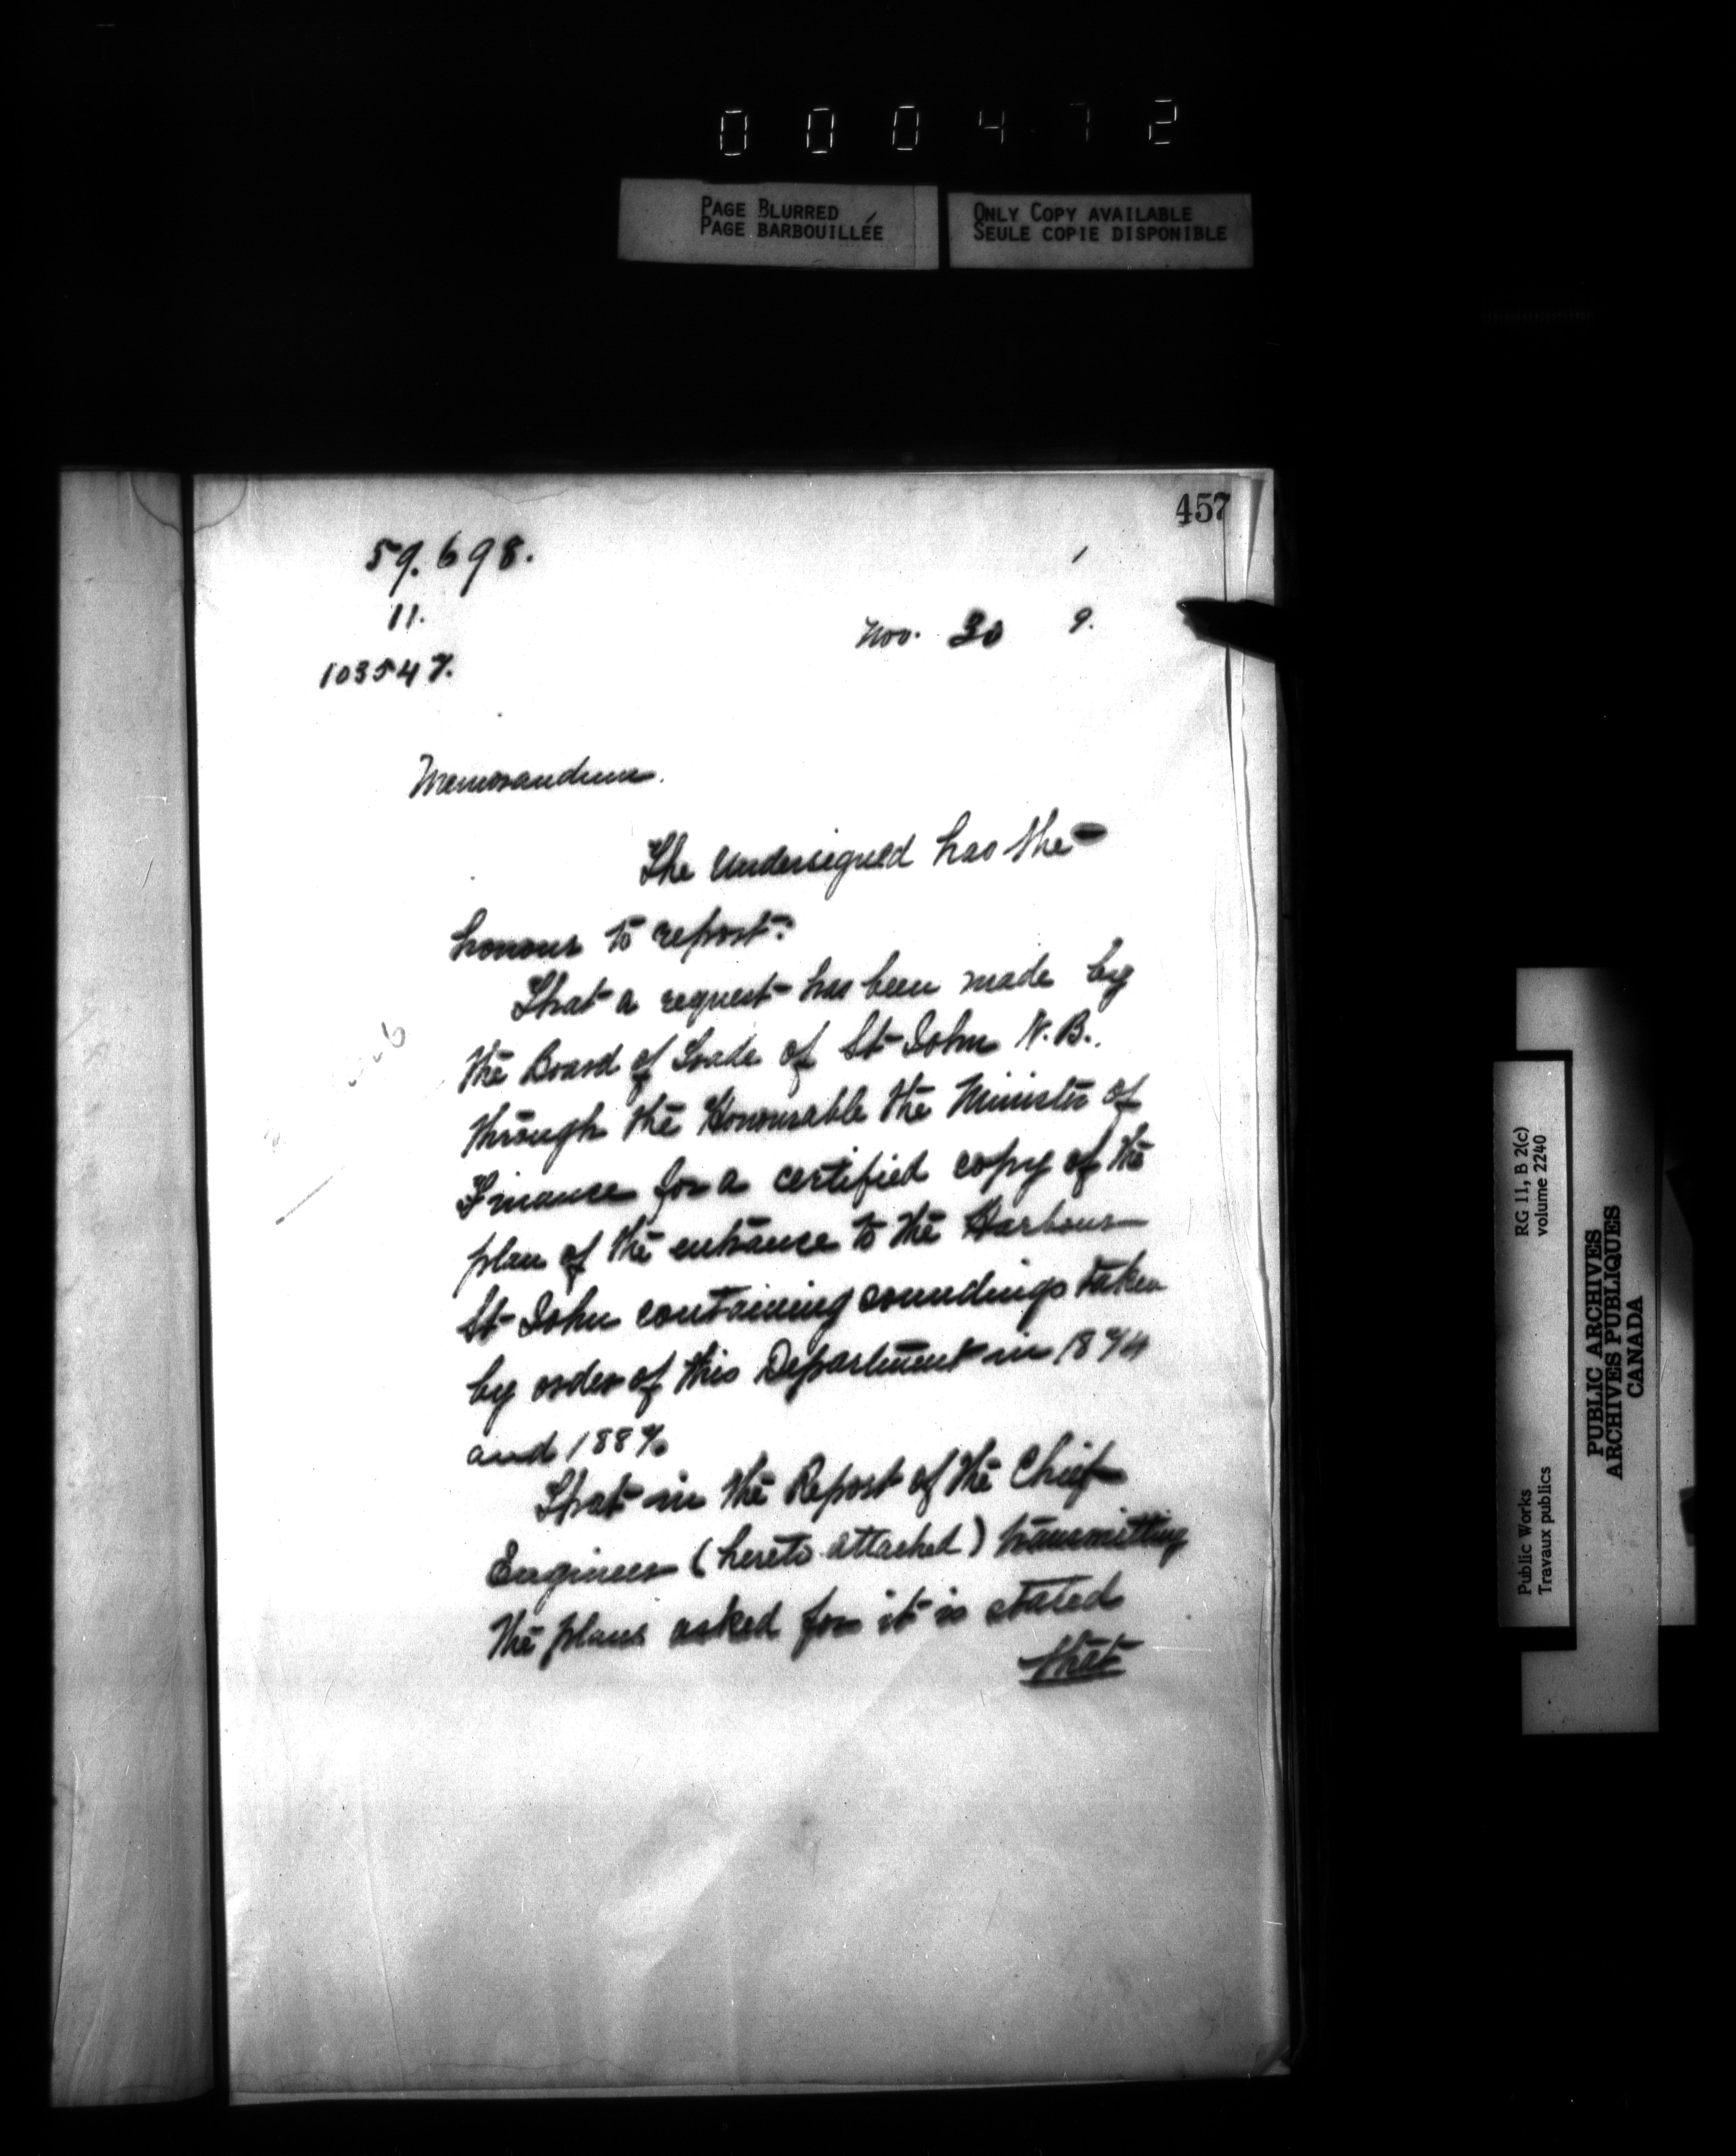 000472
PAGE BLURRED
PAGE BARBOUILLÉE
ONLY COPY AVAILABLE
SEULE COPIE DISPONIBLE
457
59.698.
11.
103547.
Nov. 30 9.
Memorandum.
The Undersigned has the
honour to report:
That a request has been made by
the Board of Trade of St John N.B.
through the Honourable the Minister of
Finance for a certified copy of the
plan of the entrance to the Harbour
St John containing soundings taken
by order of this Department in 1874
and 1887.
That in the Report of the Chief
Engineer (hereto attached) transmitting
the plans asked for it is stated
that
RG 11, B 2(c)
volume 2240
Public Works
Travaux publics
PUBLIC ARCHIVES
ARCHIVES PUBLIQUES
CANADA